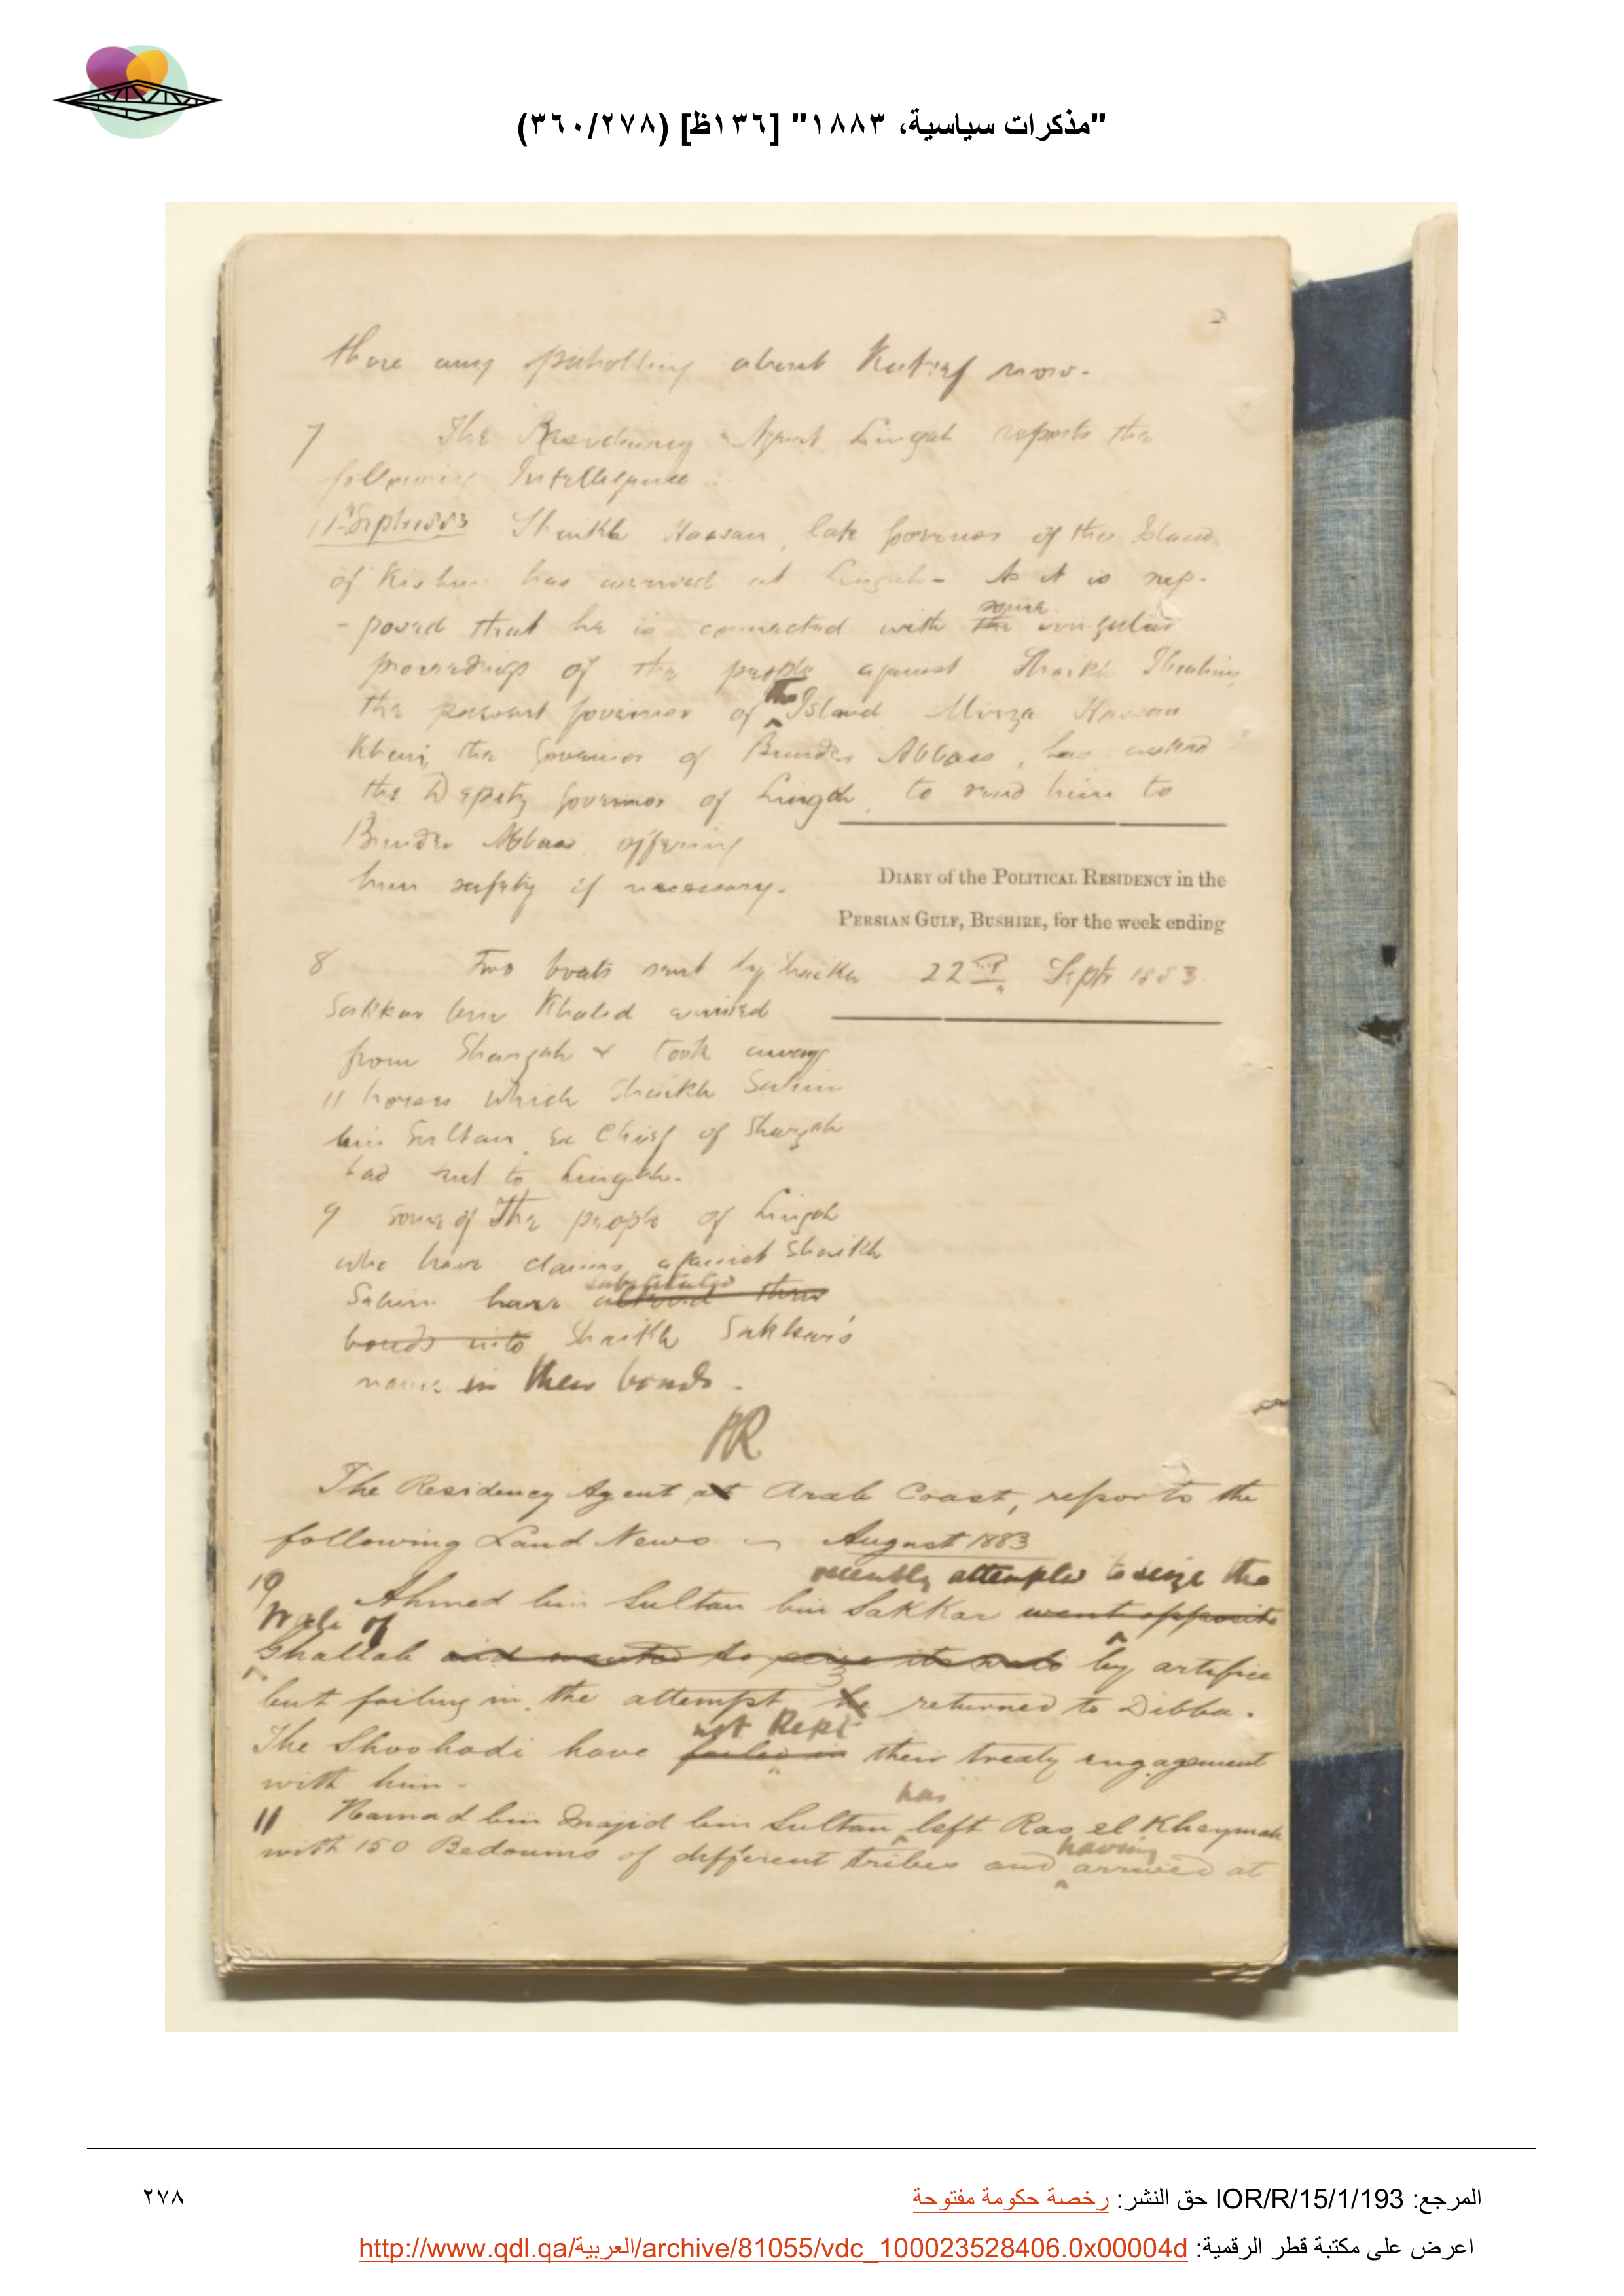 "مذكرات سياسية، ١٨٨٣" [١٣٦ظ] (٣٦٠/٢٧٨)
there any about Katief now.
7 The Residency Agent Lingah reports the
following Intelligence:
11th Septr 1883 Shaikh Hassan, late Governor of the Island
of Kishm has arrived at Lingah - As it is sup-
-posed that he is connected with the some irregular
proceedings of the people against Shaikh Ibrahim
the present Governor of the Island Mirza Hassan
Khan, the Governor of Bunder Abbass, has asked
the Deputy Governor of Lingah to send him to
Bunder Abbass offering
him safety if necessary.
DIARY of the POLITICAL RESIDENCY in the
PERSIAN GULF, BUSHIRE, for the week ending
22nd Septr 1883.
8 Two boats sent by Shaikh
Sakkar bin Khaled arrived
from Shargah & took away
11 horses which Shaikh Salim
bin Sultan, Ex Chief of Shargah
had sent to Lingah.
9 Some of The people of Lingah
who have claims against Shaikh
Salim have substituted altered their
bonds into Shaikh Sakkar's
name in their bonds.
The Residency Agent at Arab Coast, reports the
following Land News - August 1883
recently attempted to seize the
10 Ahmed bin Sultan bin Sakkar went opposite
Wali of
Ghallah and wanted to seize its wali by artifice
but failing in the attempt he returned to Dibba.
The Shoohadi have failed in not kept their treaty engagement
with him -
11 Hamad bin Majid bin Sultan has left Ras el Kheymah
with 150 Bedouins of different tribes and having arrived at
المرجع: IOR/R/15/1/193 حق النشر: رخصة حكومة مفتوحة
٢٧٨
اعرض على مكتبة قطر الرقمية: http://www.qdl.qa/العربية/archive/81055/vdc_100023528406.0x00004d